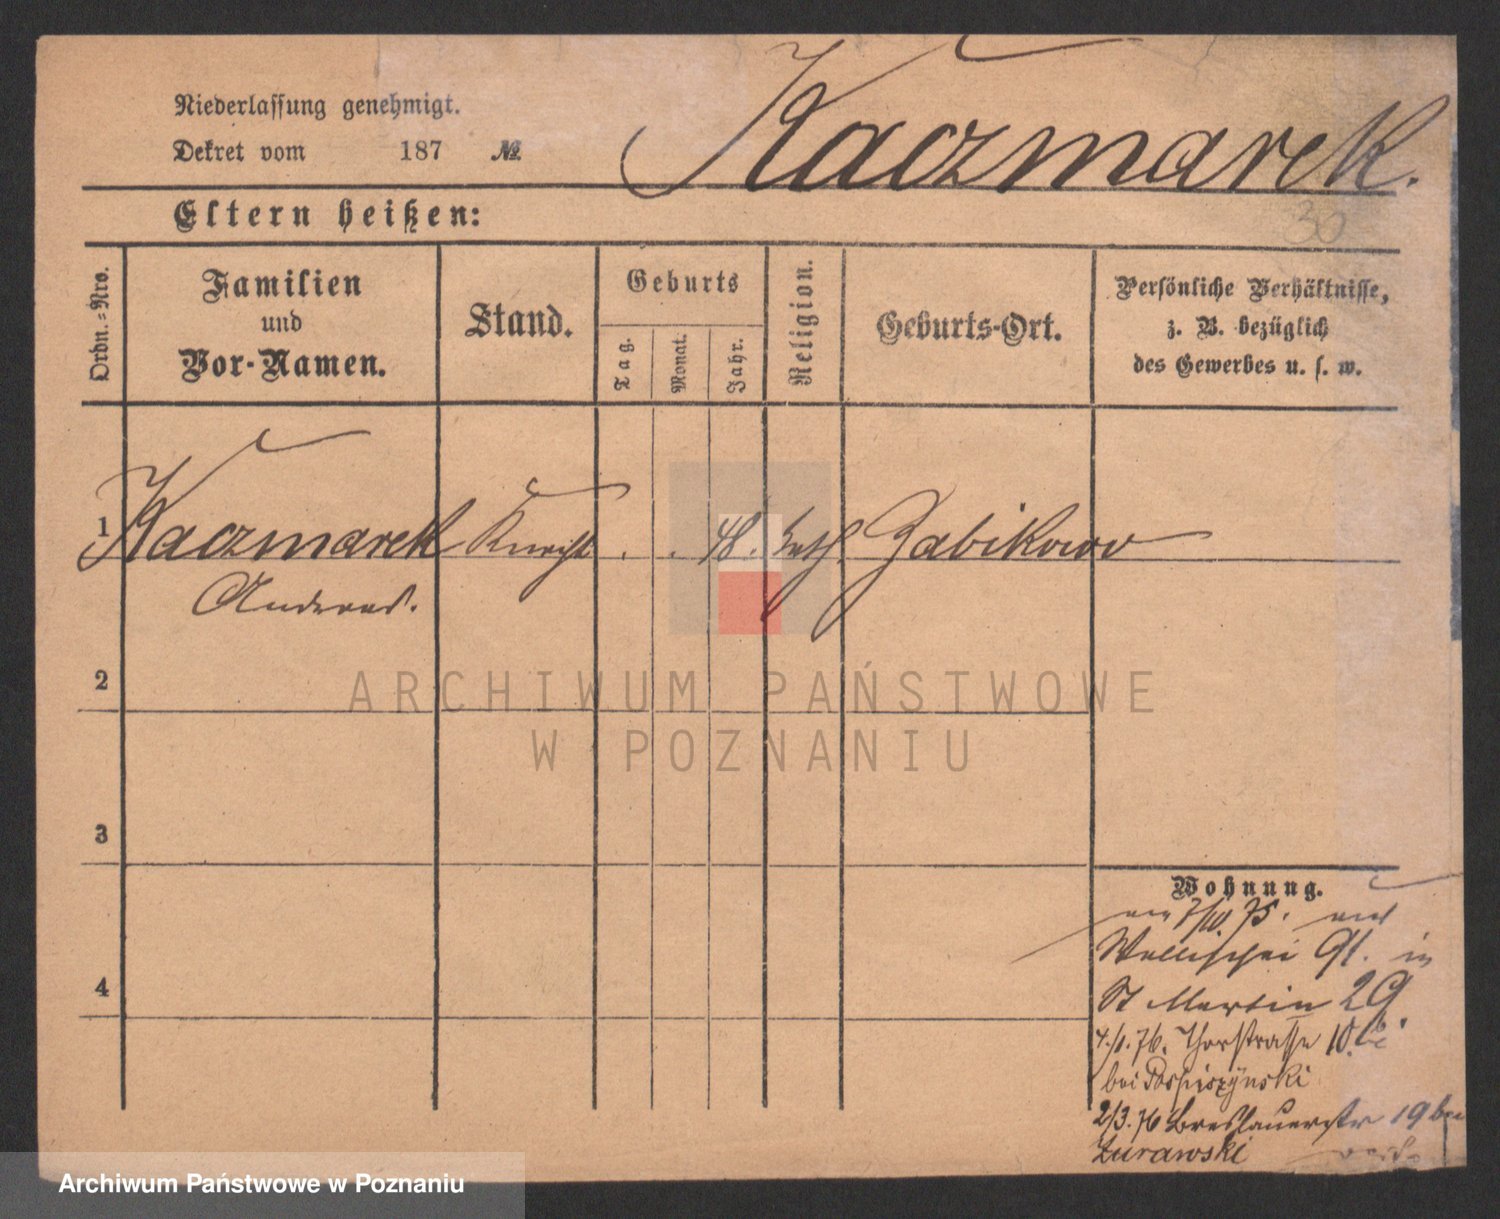 Niederlassung genehmigt.
Dekret vom 187 №
Kaczmarek.
Eltern heißen:
30
Ordn.=Nro.
Familien
und
Vor-Namen.
Stand.
Geburts
Tag.
Monat.
Jahr.
Religion.
Geburts-Ort.
Persönliche Verhältnisse,
z. B. bezüglich
des Gewerbes u. s. w.
1 Kaczmarek Knecht . . 48. kath. Zabikowo
Andreas.
2
3
4
Wohnung.
75.
Wallischei 91. in
St Martin 29
76. Thorstrasse 10.
bei Pospiszynski
2/3. 76 Breslauerstr 19 bei
Zurawski
ARCHIWUM PAŃSTWOWE
W POZNANIU
Archiwum Państwowe w Poznaniu